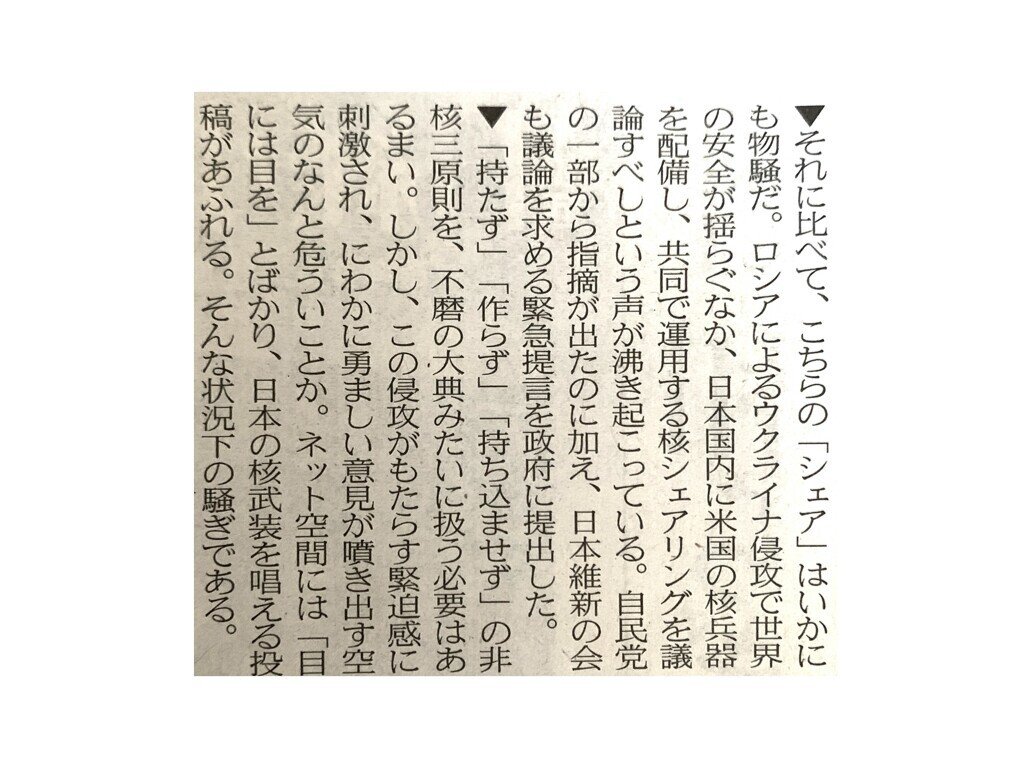 ▼それに比べて、こちらの「シェア」はいかに
も物騒だ。ロシアによるウクライナ侵攻で世界
の安全が揺らぐなか、日本国内に米国の核兵器
を配備し、共同で運用する核シェアリングを議
論すべしという声が沸き起こっている。自民党
の一部から指摘が出たのに加え、日本維新の会
も議論を求める緊急提言を政府に提出した。
▼「持たず」「作らず」「持ち込ませず」の非
核三原則を、不磨の大典みたいに扱う必要はあ
るまい。しかし、この侵攻がもたらす緊迫感に
刺激され、にわかに勇ましい意見が噴き出す空
気のなんと危ういことか。ネット空間には「目
には目を」とばかり、日本の核武装を唱える投
稿があふれる。そんな状況下の騒ぎである。